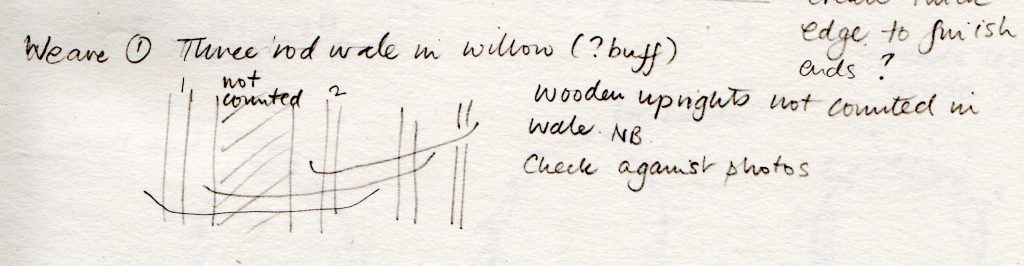 edge to finish
ends ?
Weave ① Three rod wale in willow (? buff)
1 not counted 2
Wooden uprights not counted in
wale. NB
Check against photos